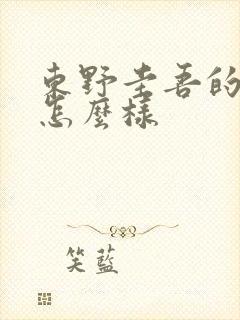 東野圭吾的
怎麼樣
笑藍